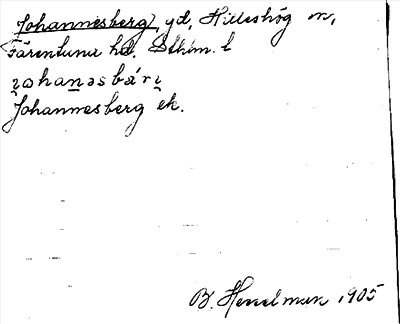 Johannesberg, gd, Hilleshög sn,
Färentuna hd. Sthlm. l
johanəsbärj
Johannesberg ek.
B. Hesselman 1905